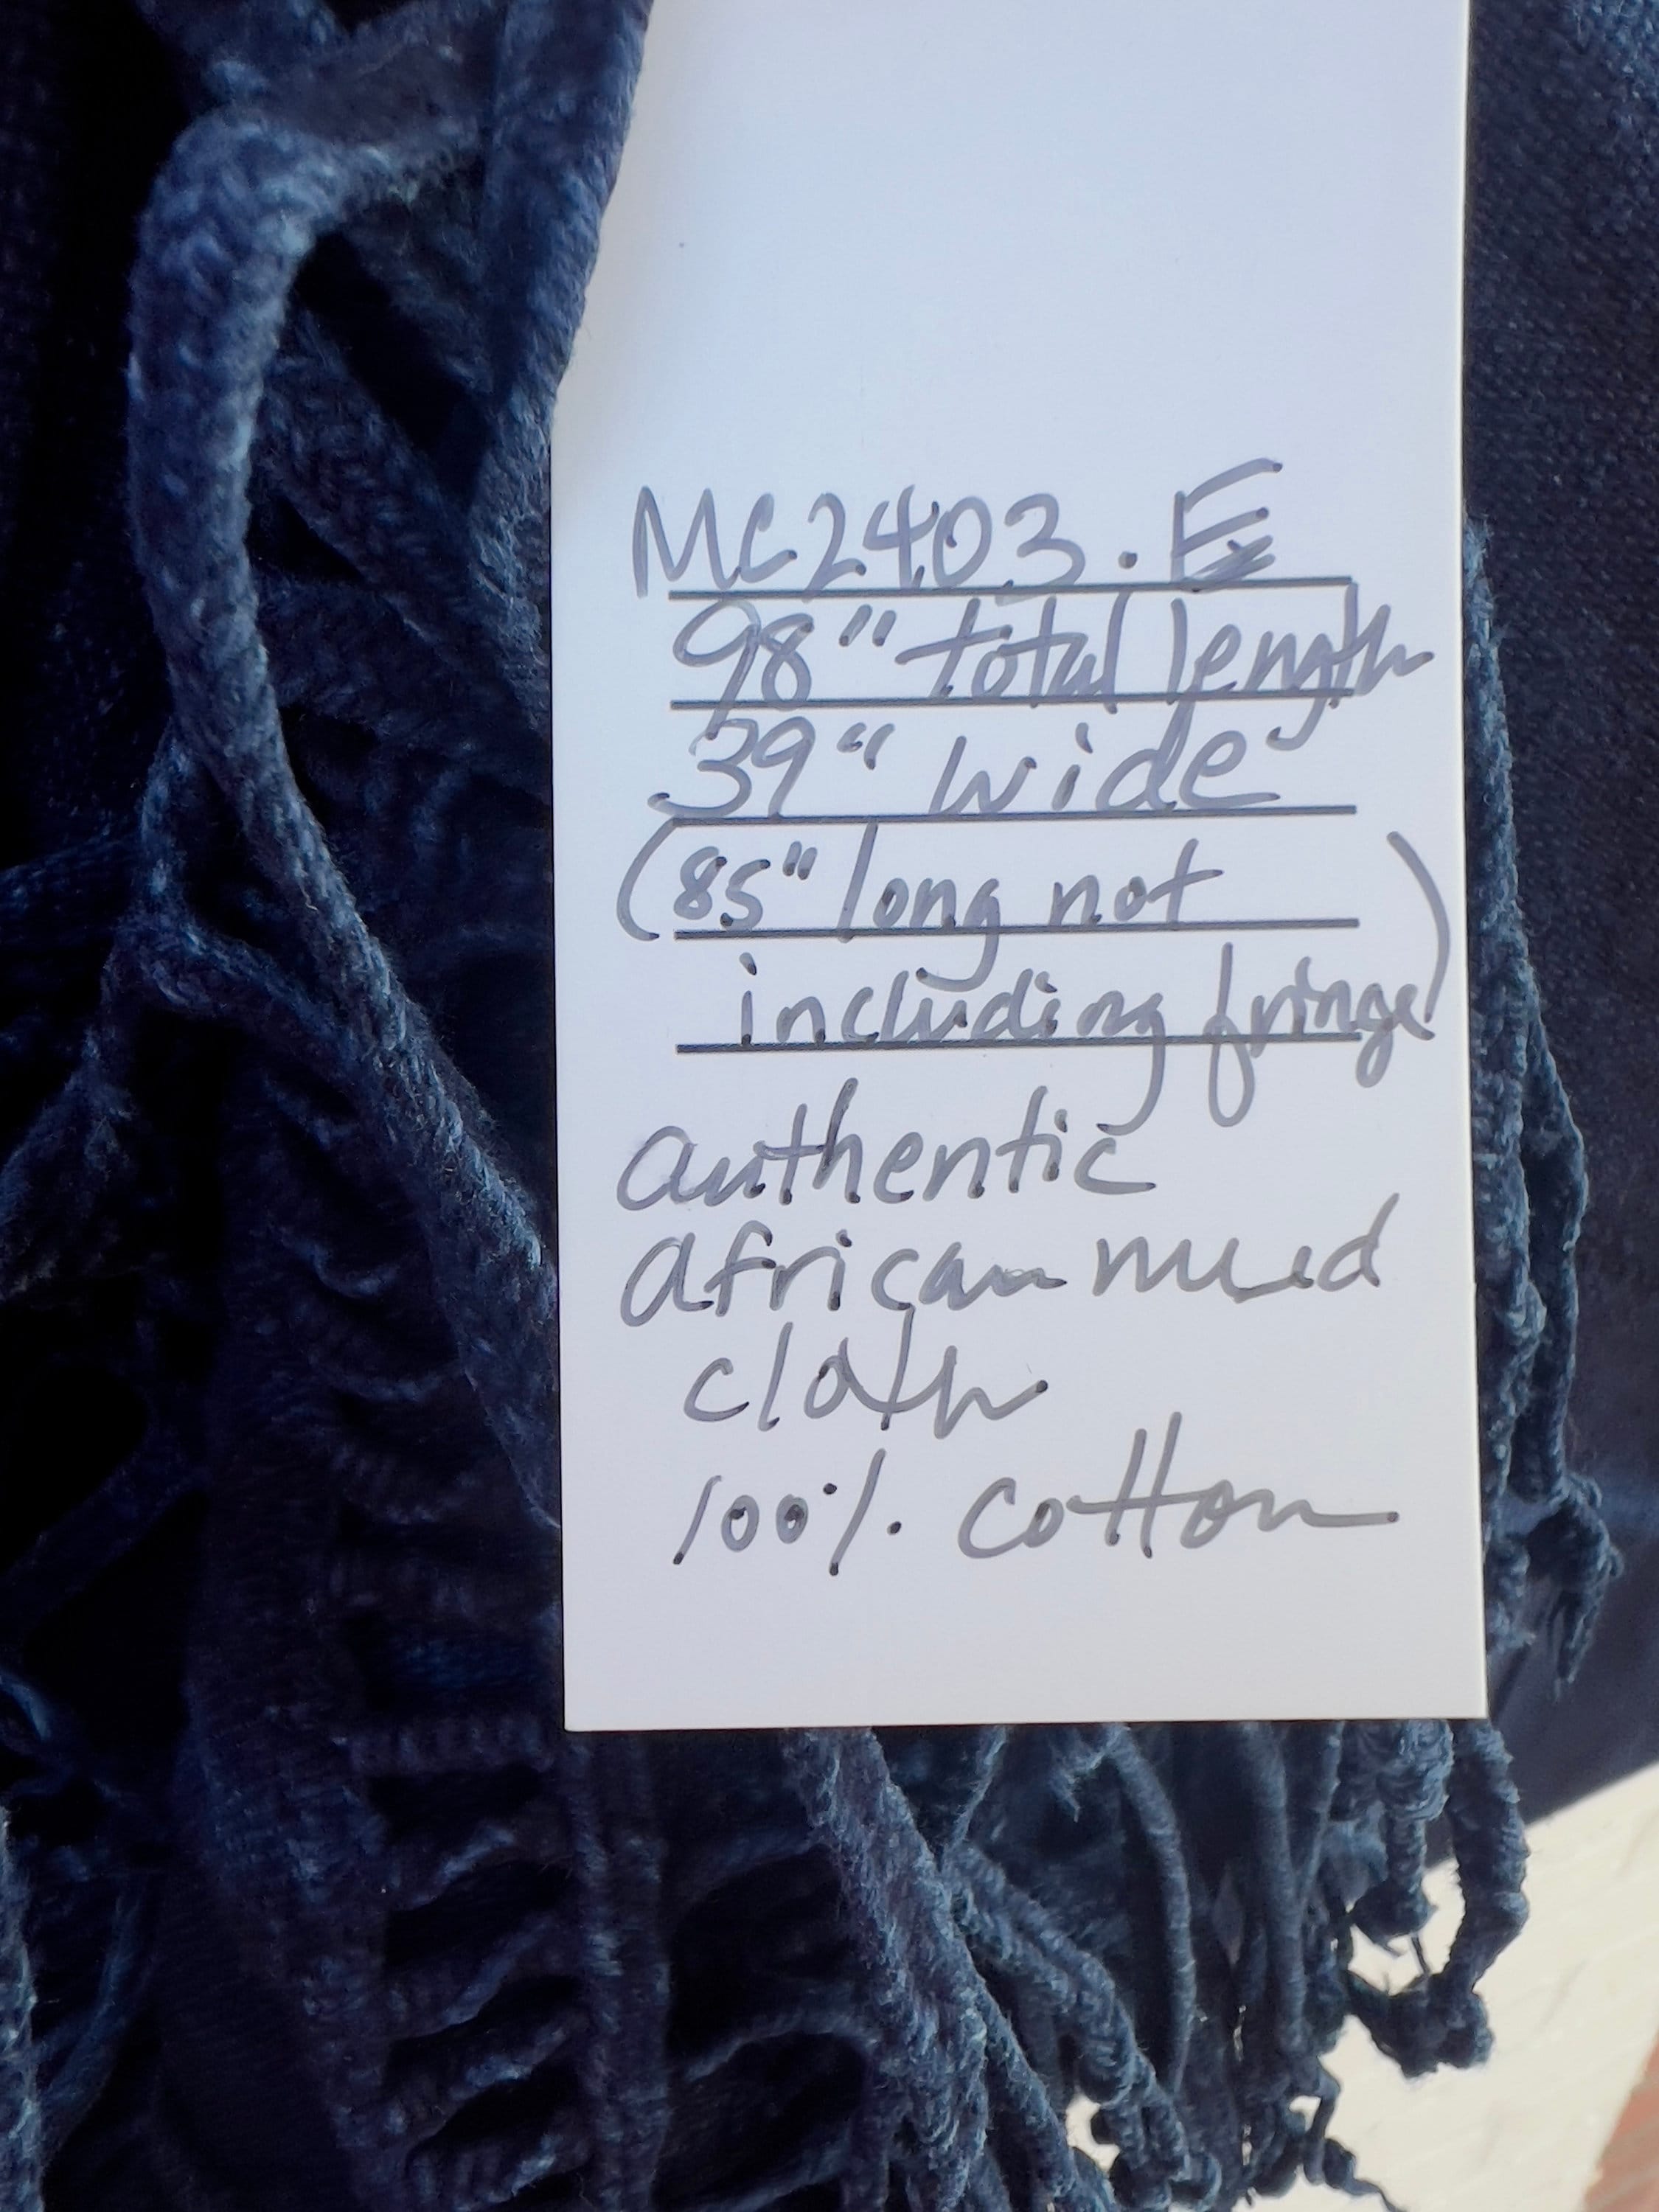 MC2403.E
98" total length
39" wide
(85" long not
including fringe)
authentic
african mud
cloth
100% cotton